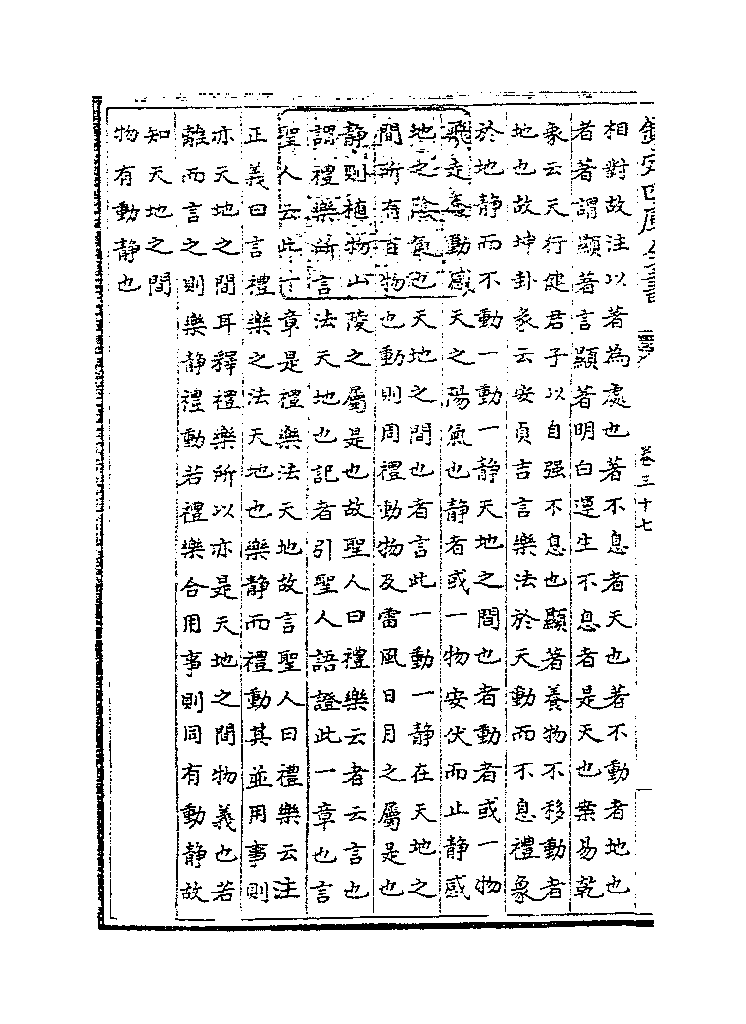 欽定四庫全書
卷三十七
相對故注以著為處也著不息者天也著不動者地也
者著謂顯著言顯著明白運生不息者是天也案易乾
象云天行健君子以自强不息也顯著養物不移動者
地也故坤卦象云安貞吉言樂法於天動而不息禮象
於地静而不動一動一静天地之間也者動者或一物
飛走蠢動感天之陽氣也静者或一物安伏而止静感
地之陰氣也天地之間也者言此一動一静在天地之
間所有百物也動則周禮動物及雷風日月之屬是也
静則植物山陵之屬是也故聖人曰禮樂云者云言也
謂禮樂所言法天地也記者引聖人語證此一章也言
聖人云此一章是禮樂法天地故言聖人曰禮樂云注
正義曰言禮樂之法天地也樂静而禮動其並用事則
亦天地之間耳釋禮樂所以亦是天地之間物義也若
離而言之則樂静禮動若禮樂合用事則同有動静故
知天地之間
物有動静也